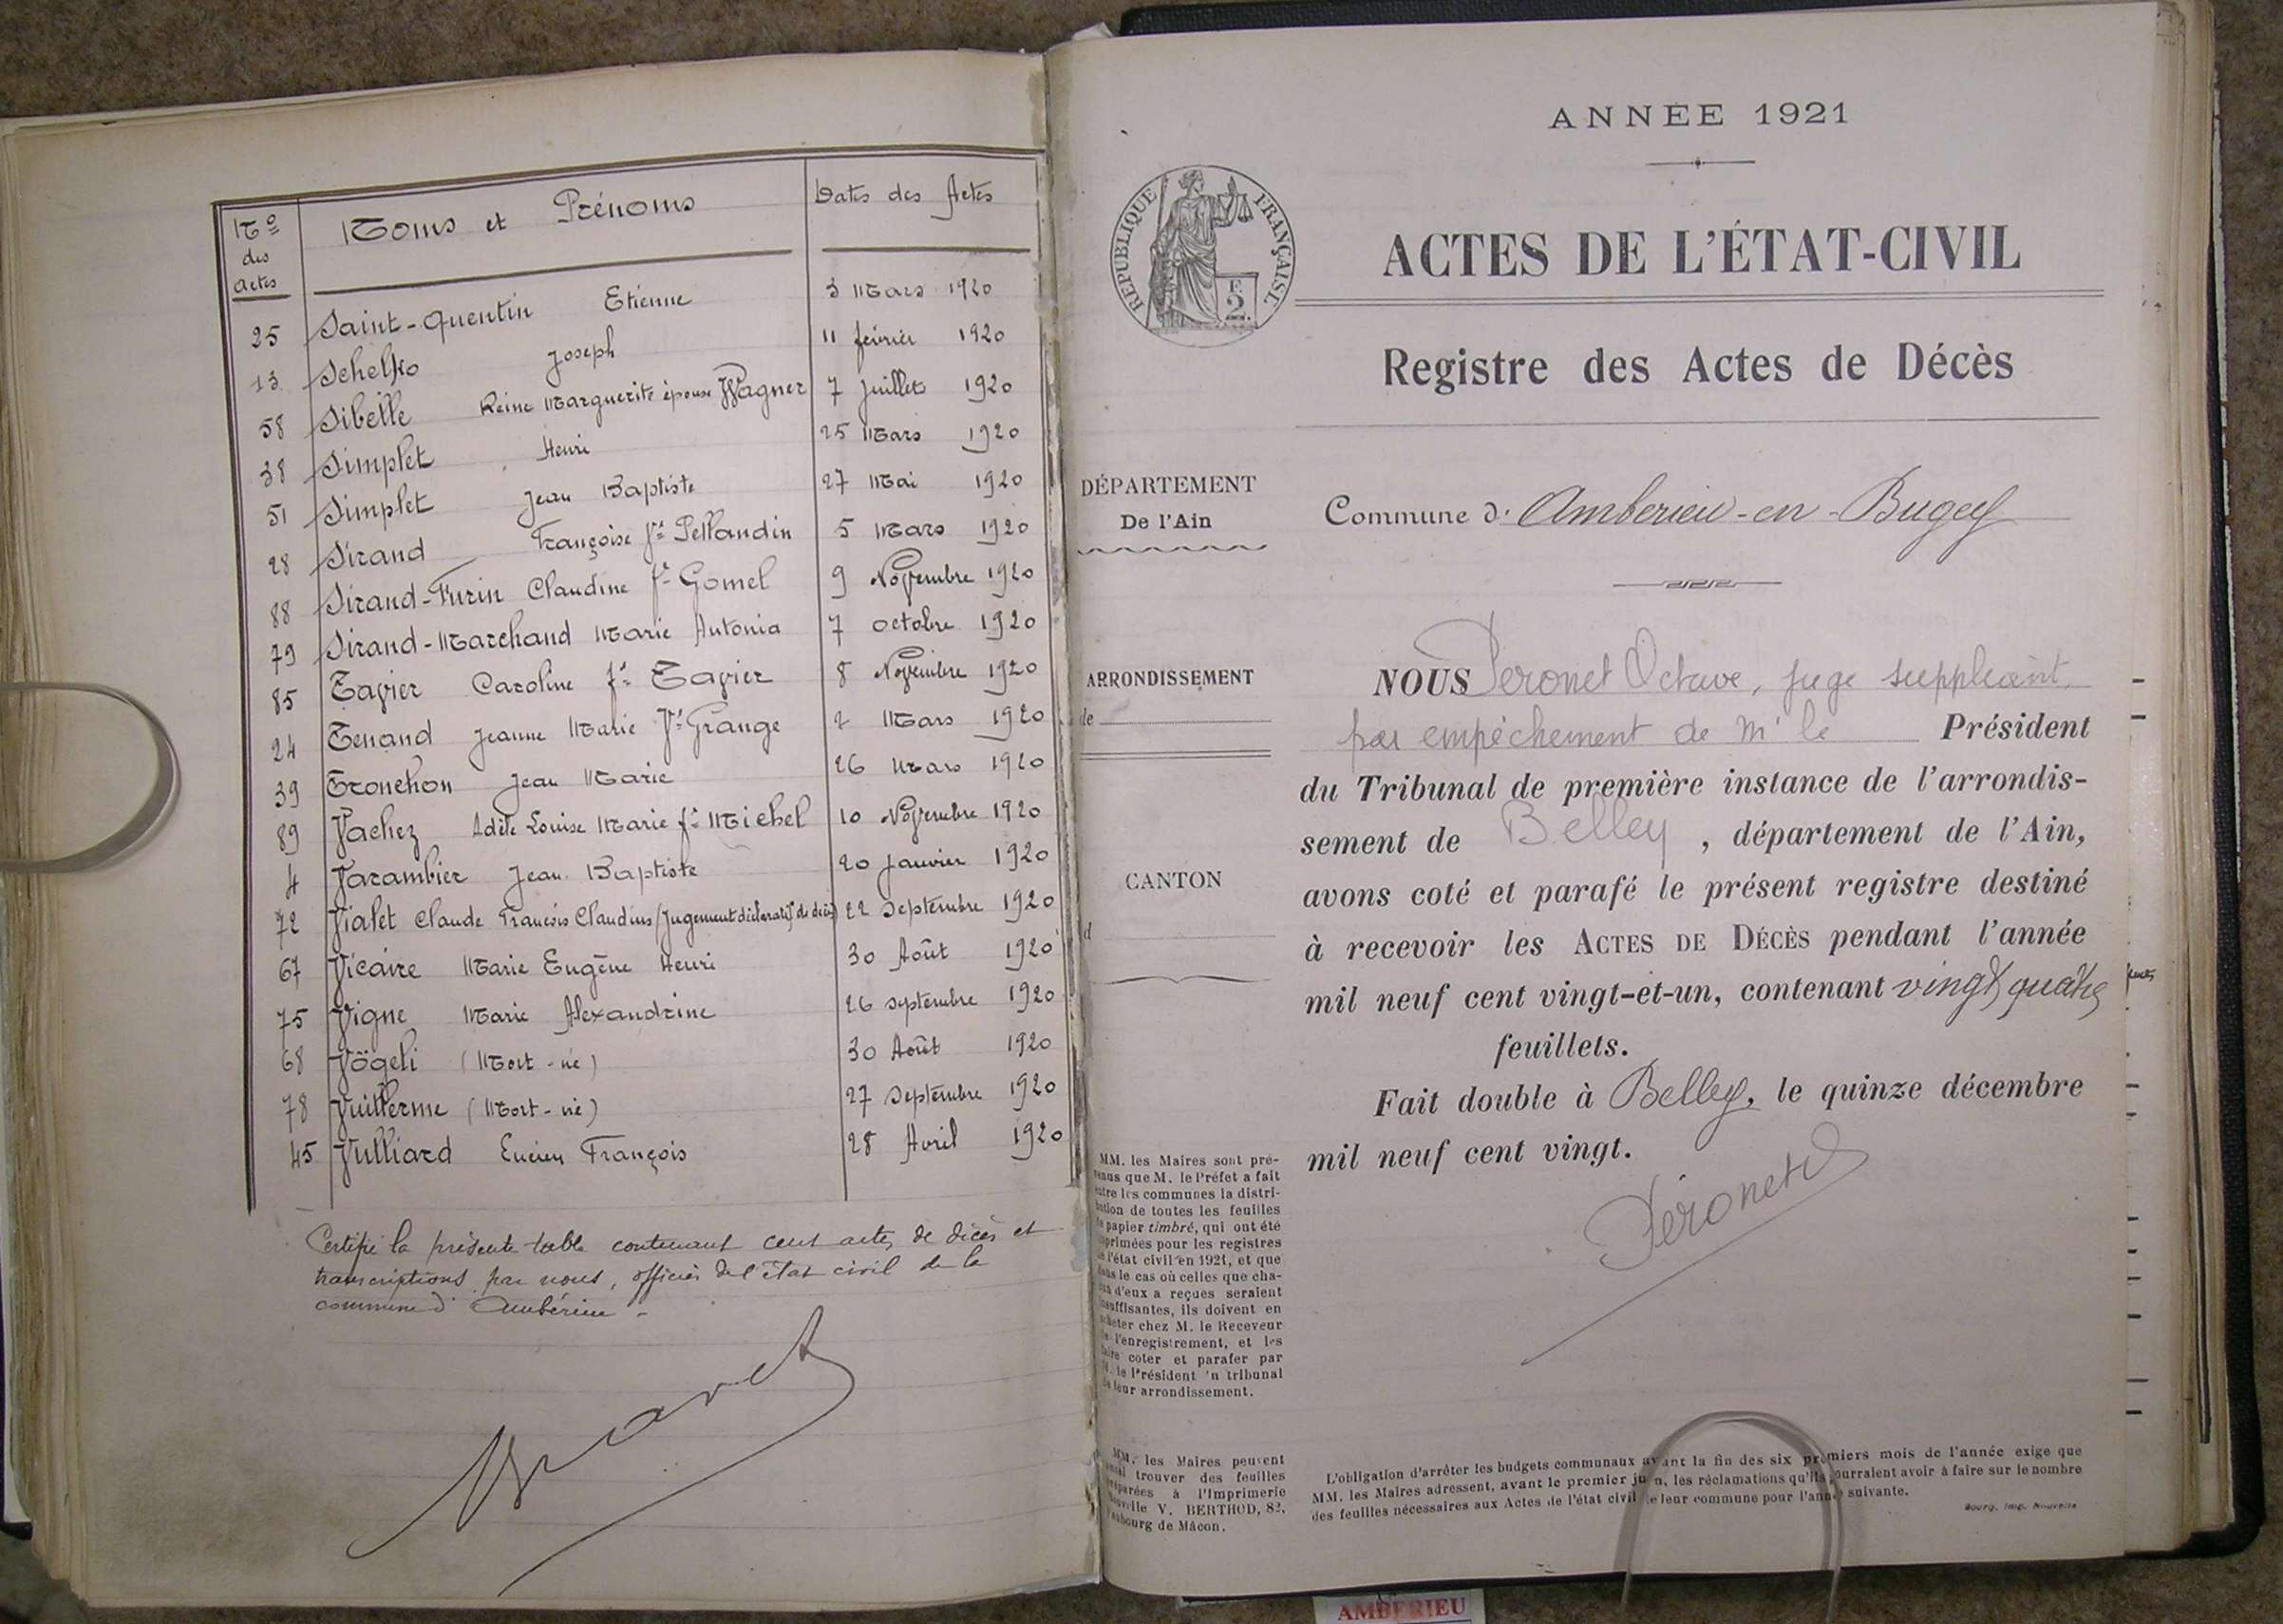 Nº des actes Noms et Prénoms Dates des Actes
25 Saint-Quentin Etienne 3 Mars 1920
13 Schelko Joseph 11 février 1920
58 Sibelle Reine Marguerite épouse Wagner 7 Juillet 1920
38 Simplet Henri 25 Mars 1920
51 Simplet Jean Baptiste 27 Mai 1920
28 Sirand Françoise Vᵉ Pellaudin 5 Mars 1920
88 Sirand-Furin Claudine fᵉ Gomel 9 Novembre 1920
79 Sirand-Marchand Marie Antonia 7 octobre 1920
85 Tavier Caroline fᵉ Tavier 8 Novembre 1920
24 Tenand Jeanne Marie Vᵉ Grange 2 Mars 1920
39 Tronchon Jean Marie 26 Mars 1920
89 Vachez Adèle Louise Marie fᵉ Michel 10 Novembre 1920
4 Varambier Jean Baptiste 20 Janvier 1920
72 Vialet Claude François Claudius (Jugement déclaratif de décès) 22 Septembre 1920
67 Vicaire Marie Eugène Henri 30 Août 1920
75 Vigne Marie Alexandrine 26 septembre 1920
68 Vögeli (Mort-né) 30 Août 1920
78 Vuillerme (Mort-né) 27 Septembre 1920
45 Vulliard Lucien François 28 Avril 1920
Certifié la présente table contenant cent actes de décès et
transcriptions par nous, officier de l'état civil de la
commune d'Ambérieu -
ANNÉE 1921
RÉPUBLIQUE FRANÇAISE
F. 2.
ACTES DE L'ÉTAT-CIVIL
Registre des Actes de Décès
DÉPARTEMENT
De l'Ain
Commune d' Amberieu-en-Bugey
ARRONDISSEMENT
de
CANTON
d
NOUS Peronet Octave, juge suppléant,
par empêchement de Mʳ le Président
du Tribunal de première instance de l'arrondis-
sement de Belley, département de l'Ain,
avons coté et parafé le présent registre destiné
à recevoir les ACTES DE DÉCÈS pendant l'année
mil neuf cent vingt-et-un, contenant vingt quatre
feuillets.
Fait double à Belley, le quinze décembre
mil neuf cent vingt.
Péronet
MM. les Maires sont pré-
venus que M. le Préfet a fait
entre les communes la distri-
bution de toutes les feuilles
de papier timbré, qui ont été
imprimées pour les registres
de l'état civil en 1921, et que
dans le cas où celles que cha-
cun d'eux a reçues seraient
insuffisantes, ils doivent en
acheter chez M. le Receveur
de l'enregistrement, et les
faire coter et parafer par
M. le Président 'u tribunal
de leur arrondissement.
MM. les Maires peuvent
aussi trouver des feuilles
préparées à l'Imprimerie
Nouvelle V. BERTHOD, 82,
faubourg de Mâcon.
L'obligation d'arrêter les budgets communaux avant la fin des six premiers mois de l'année exige que
MM. les Maires adressent, avant le premier juin, les réclamations qu'ils pourraient avoir à faire sur le nombre
des feuilles nécessaires aux Actes de l'état civil de leur commune pour l'année suivante.
Bourg, Imp. Nouvelle
AMBERIEU